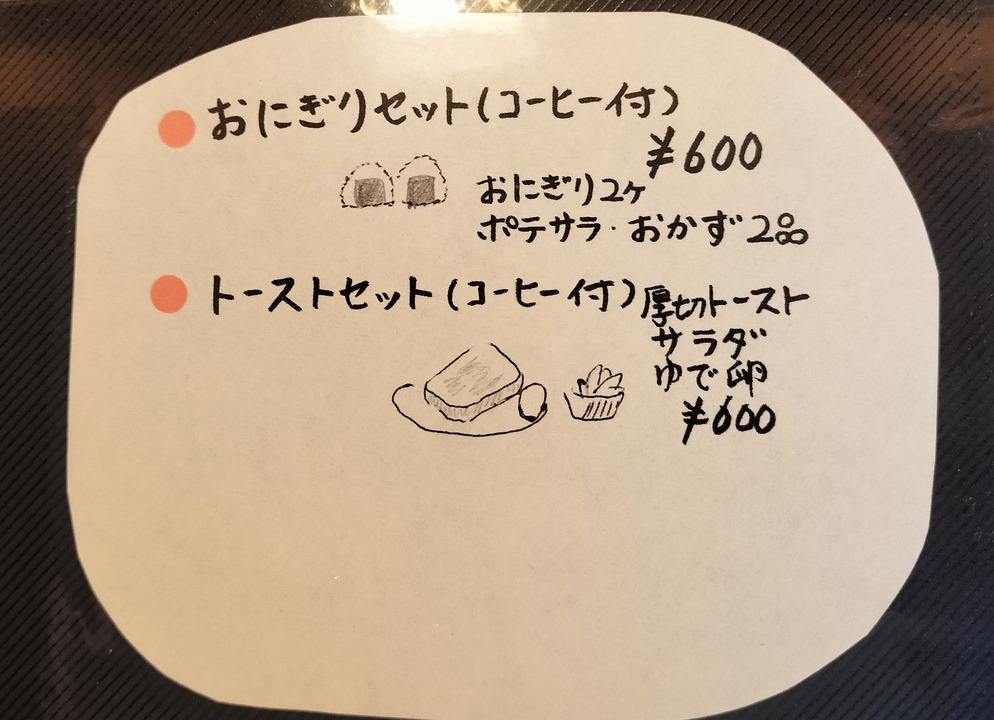 おにぎりセット(コーヒー付)
¥600
おにぎり2ヶ
ポテサラ・おかず2品
トーストセット(コーヒー付)
厚切トースト
サラダ
ゆで卵
¥600